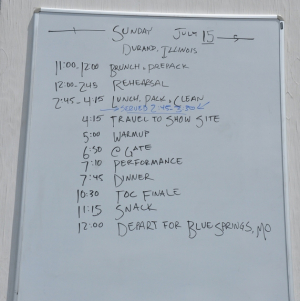 SUNDAY JULY 15
DURAND, ILLINOIS
11:00-12:00 BRUNCH, PREPACK
12:00-2:45 REHEARSAL
2:45-4:15 LUNCH, PACK, CLEAN
4:15 TRAVEL TO SHOW SITE
5:00 WARMUP
6:50 @ GATE
7:10 PERFORMANCE
7:45 DINNER
10:30 TOC FINALE
11:15 SNACK
12:00 DEPART FOR BLUE SPRINGS, MO